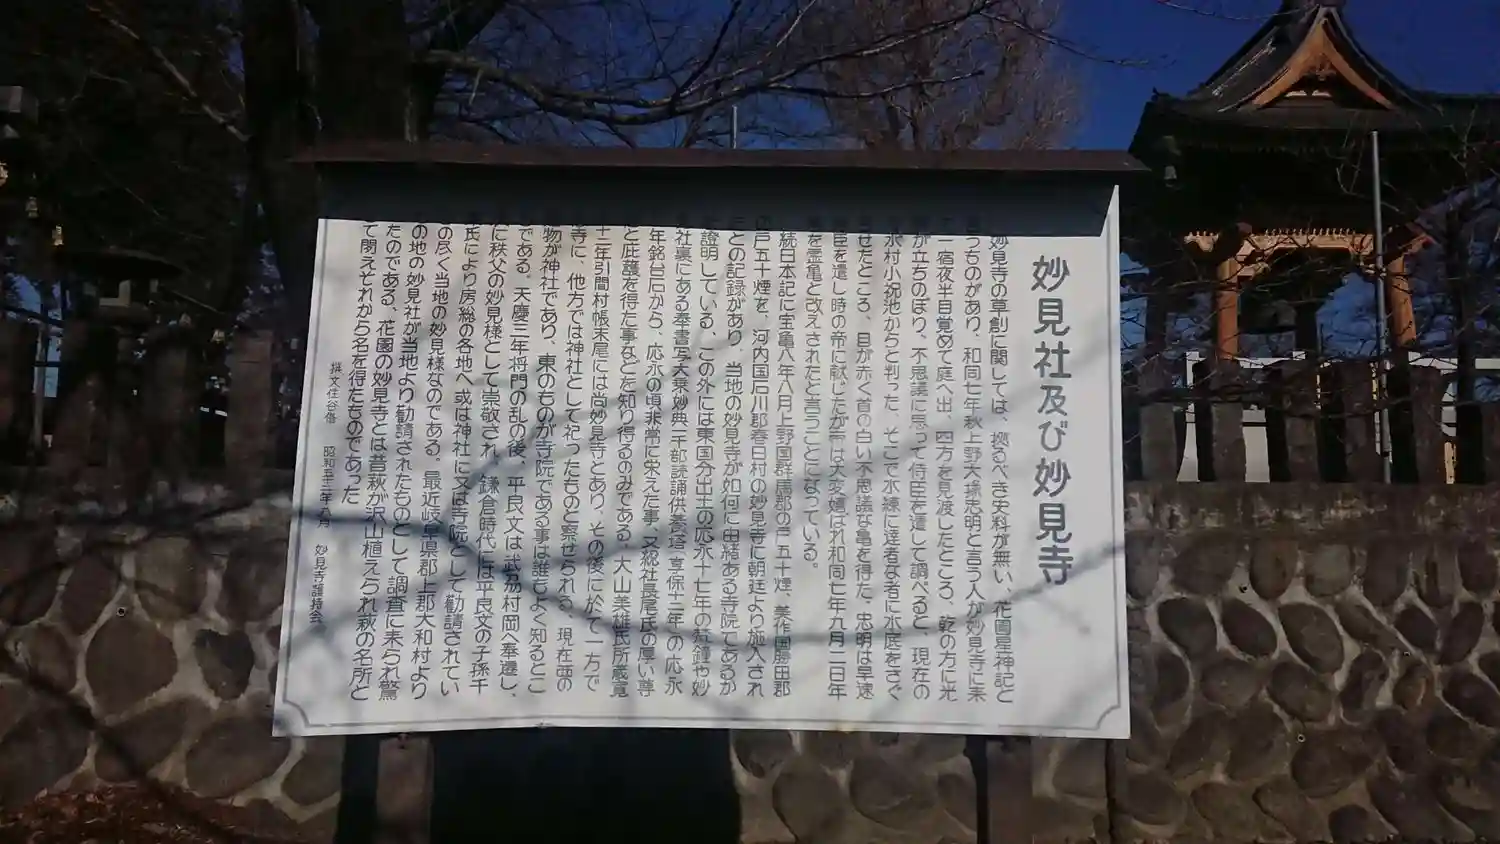 妙見社及び妙見寺
妙見寺の草創に関しては、拠るべき史料が無い、花園星神記と
うちのがあり、和同七年秋上野大掾忠明と言う人が妙見寺に来
一宿夜半目覚めて庭へ出、四方を見渡したところ、乾の方に光
が立ちのぼり、不思議に思って侍臣を遣して調べると、現在の
水村小祝池からと判った、そこで水練に達者な者に水底をさぐ
せたところ、目が赤く首の白い不思議な亀を得た、忠明は早速
臣を遣し時の帝に献じたが帝は大変嬉ばれ和同七年九月二日年
を霊亀と改えされたと言うことになっている。
続日本記に宝亀八年八月上野国群馬郡の戸五十煙、美作国勝田郡
の戸五十煙を、河内国石川郡春日村の妙見寺に朝廷より施入され
との記録があり、当地の妙見寺が如何に由緒ある寺院であるか
證明している、この外には東国分出土の応永十七年の梵鐘や妙
社裏にある奉書写大乗妙典二千部読誦供養塔(享保十二年)の応永
年銘台石から、応永の頃非常に栄えた事、又総社長尾氏の厚い尊
と庇護を得た事などを知り得るのみである、大山美雄氏所蔵寛
十二年引間村帳末尾には尚妙見寺とあり、その後に於て一方で
寺に、他方では神社として祀ったものと察せられる、現在西の
物が神社であり、東のものが寺院である事は誰もよく知るとこ
である、天慶三年将門の乱の後、平良文は武蔵村岡へ奉遷し、
に秩父の妙見様として崇敬され、鎌倉時代には平良文の子孫千
氏により房総の各地へ或は神社に又は寺院として勧請されてい
の尽く当地の妙見様なのである。最近岐阜県郡上郡大和村より
の地の妙見社が当地より勧請されたものとして調査に来られ驚
たのである、花園の妙見寺とは昔萩が沢山植えられ萩の名所と
て聞えそれから名を得たものであった
撰文住谷修　昭和五十二年八月　妙見寺護持会